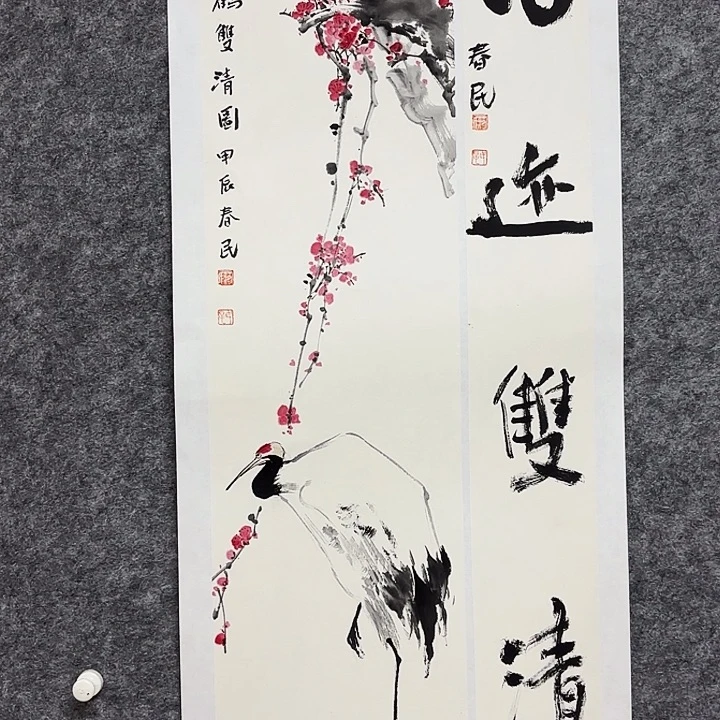 迹雙清
春民
鶴雙清圖 甲辰春民